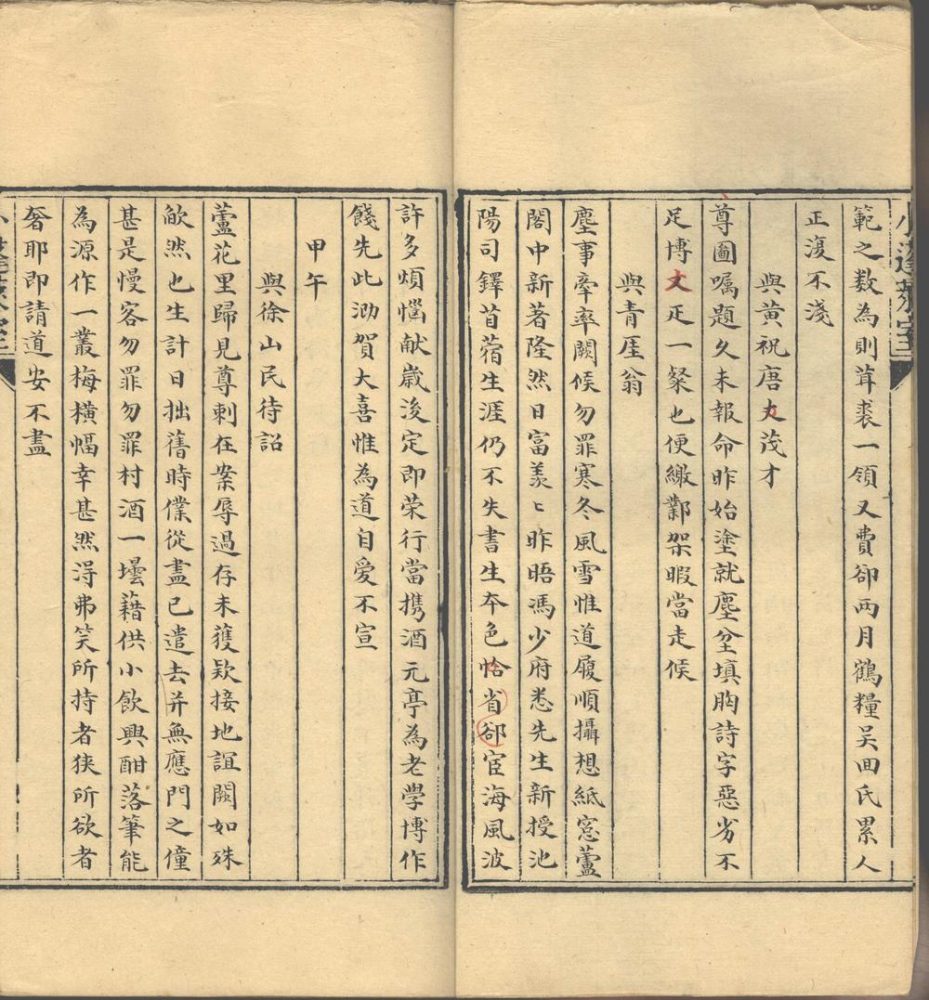 範之数為則葺裘一領又費卻兩月鶴糧吴回氏累人
正復不淺
與黄祝唐文茂才
尊圖嘱題久未報命昨始塗就塵坌填胸詩字惡劣不
足博文疋一粲也便繳鄴架暇當走候
與青厓翁
塵事牽率闕候勿罪寒冬風雪惟道履順攝想紙窓蘆
閣中新著隆然日富羡〻昨晤馮少府悉先生新授池
陽司鐸苜蓿生涯仍不失書生夲色恰省卻宦海風波
許多煩惱献歳後定即荣行當携酒元亭為老學博作
餞先此泐賀大喜惟為道自愛不宣
甲午
與徐山民待詔
蘆花里歸見尊刺在案辱過存未獲欵接地誼闕如殊
歉然也生計日拙舊時僕從盡已遣去并無應門之僮
甚是慢客勿罪勿罪村酒一壜藉供小飲興酣落筆能
為源作一叢梅橫幅幸甚然得弗笑所持者狭所欲者
奢耶即請道安不盡